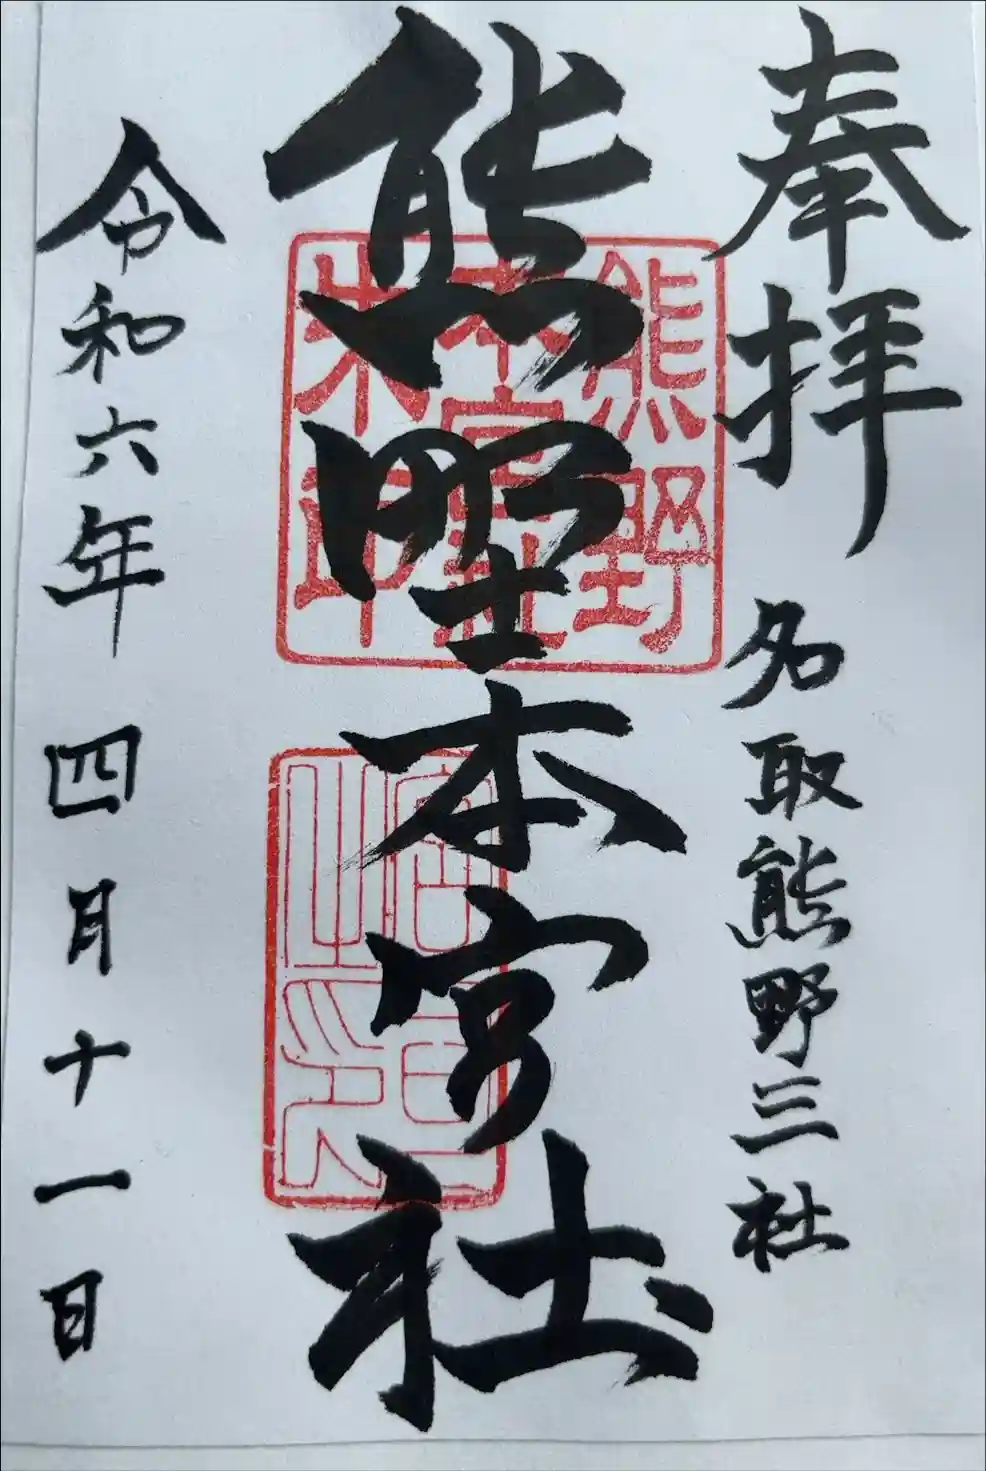 奉拝
名取熊野三社
熊野本宮社
熊野
本宮社
朱印
令和六年四月十一日